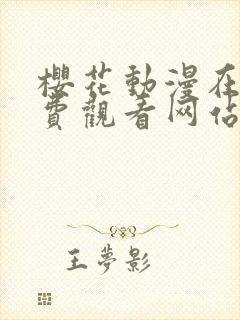 櫻花動漫在
費觀看网佔
王夢影